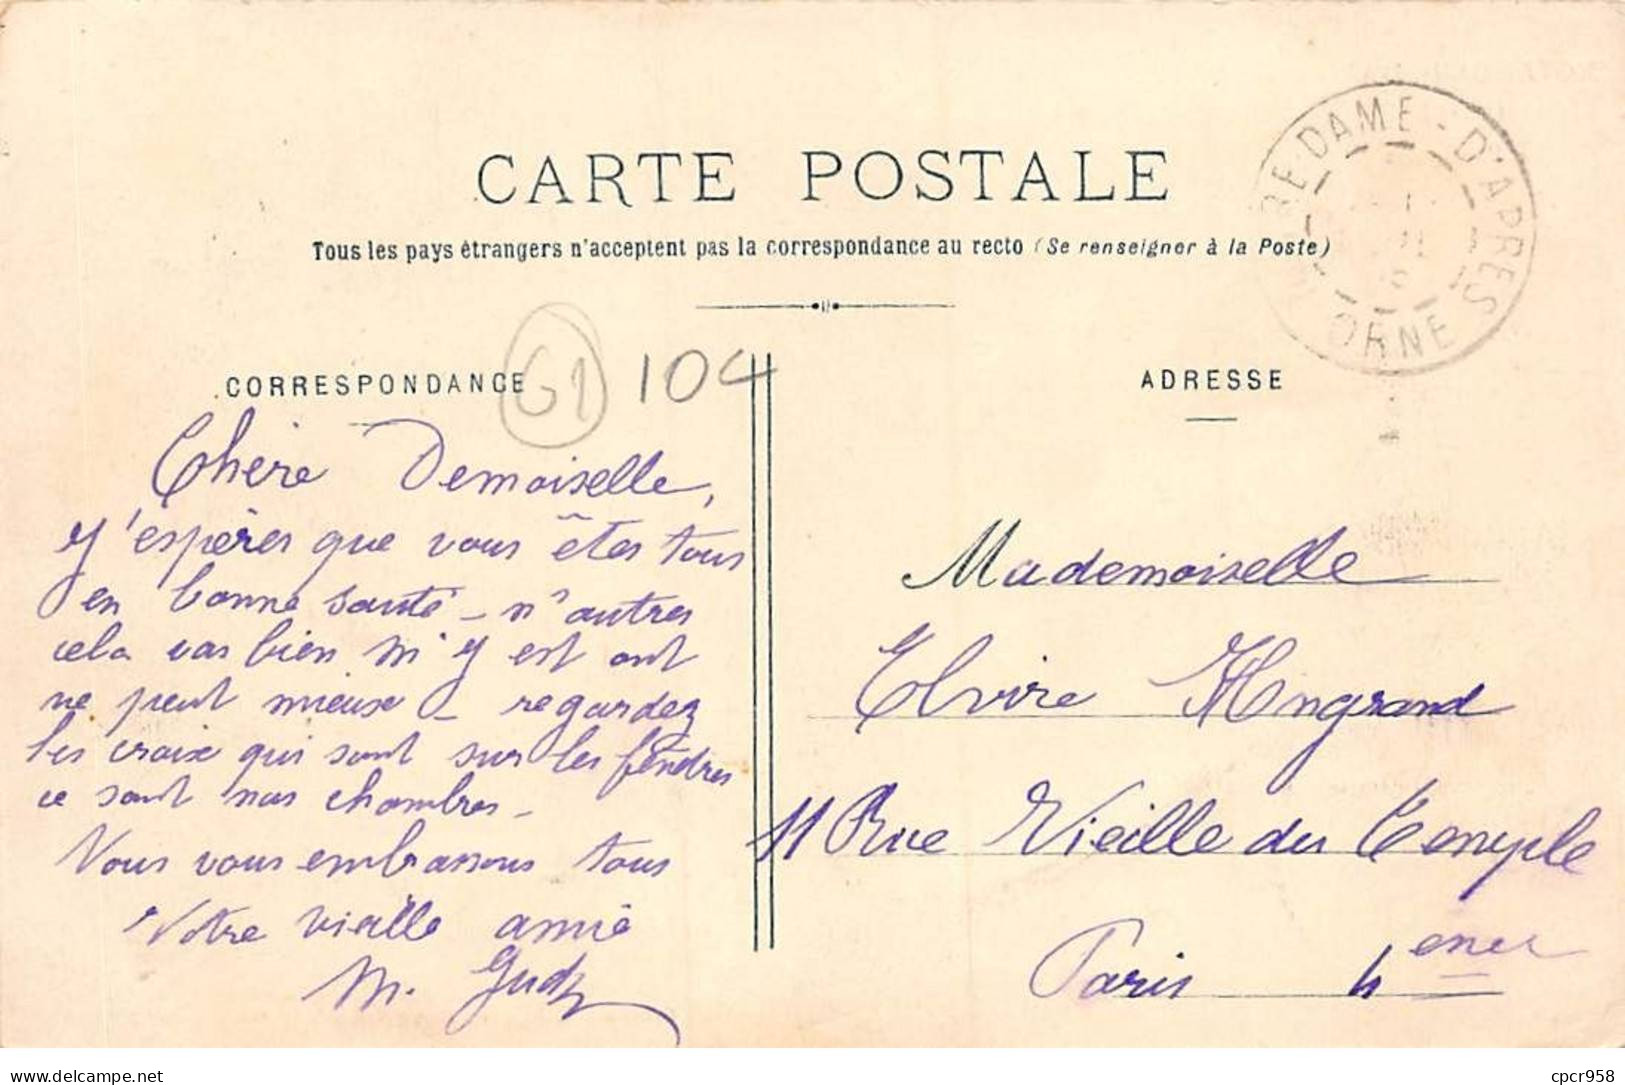 CARTE POSTALE
Tous les pays étrangers n'acceptent pas la correspondance au recto (Se renseigner à la Poste)
RE-DAME-D'APRES
ORNE
G1 104
CORRESPONDANCE
Chère Demoiselle,
J'espères que vous êtes tous
en bonne santé - n'autres
cela vas bien M' y est ont
ne peut mieux - regardez
les croix qui sont sur les fendres
ce sont nos chambres -
Nous vous embrassons tous
Votre vieille amie
M.
ADRESSE
Mademoiselle
Elvire
11 Rue Vieille du Temple
Paris 4
délcampe.net
cpcr958